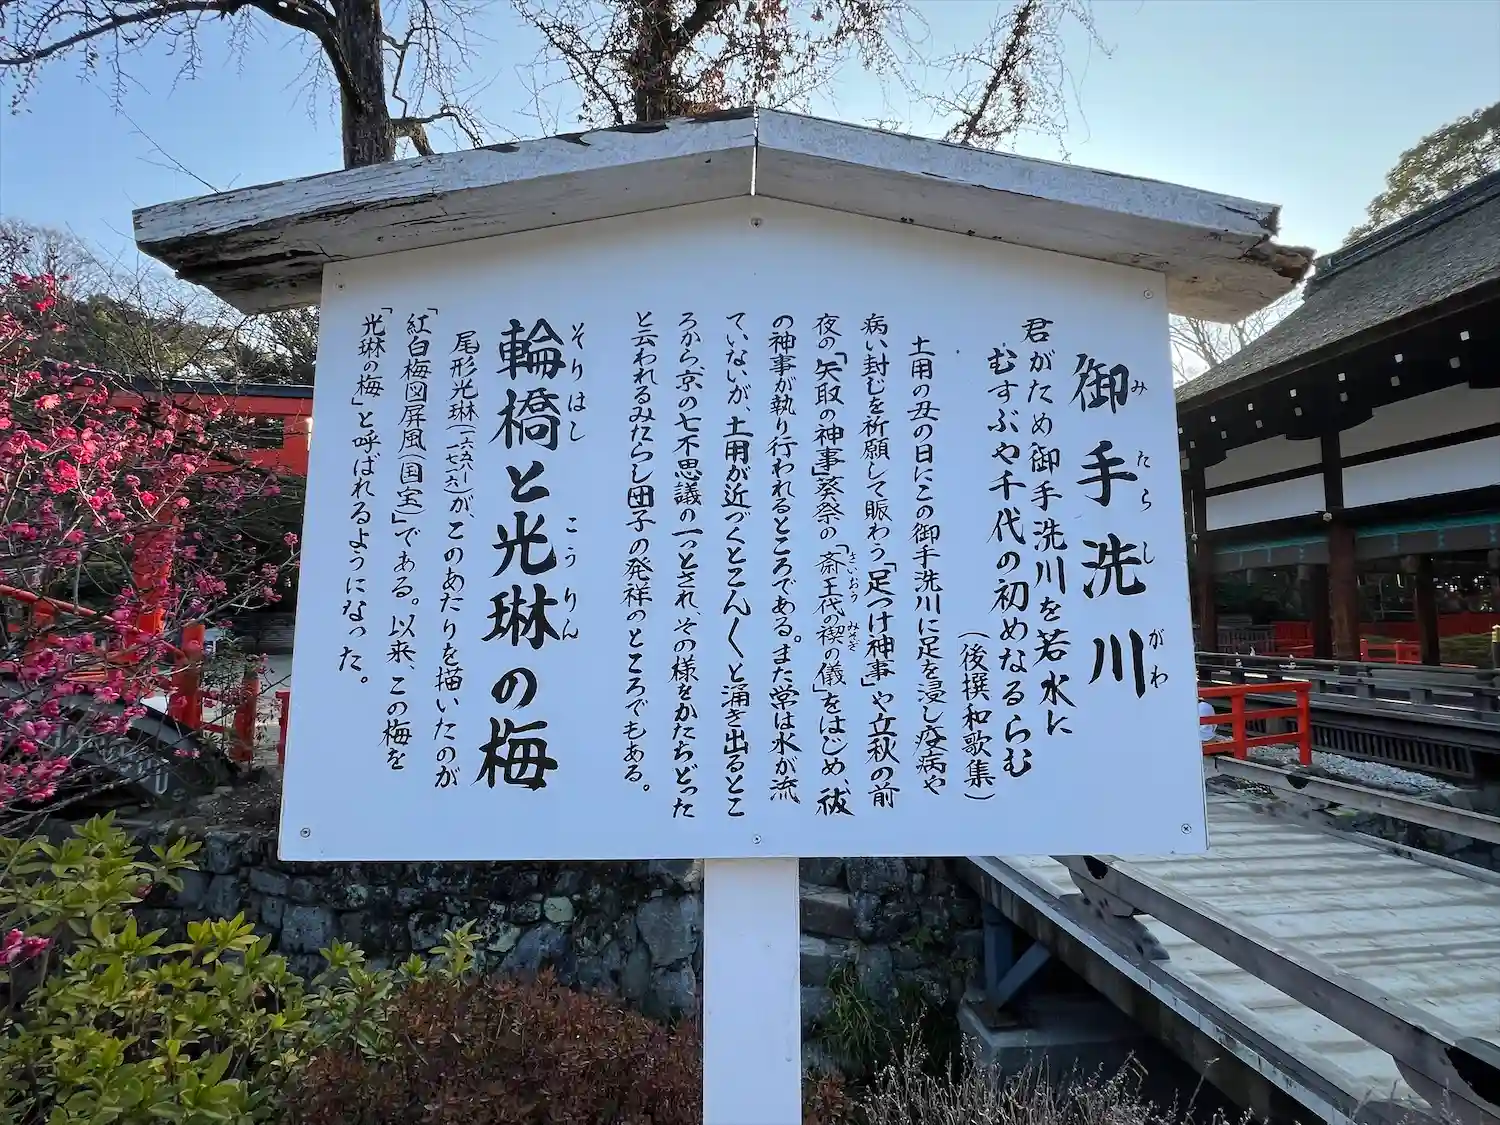 御手洗川
みたらしがわ
君がため御手洗川を若水に
むすぶや千代の初めなるらむ
(後撰和歌集)
土用の丑の日にこの御手洗川に足を浸し疫病や
病い封じを祈願して賑わう「足つけ神事」や立秋の前
夜の「矢取の神事」葵祭の「斎王代の禊の儀」をはじめ、祓
さいおう
みそぎ
の神事が執り行われるところである。また常は水が流
ていないが、土用が近づくとこんくと湧き出るとこ
ろから、京の七不思議の一つとされ、その様をかたちどった
と云われるみたらし団子の発祥のところでもある。
輪橋と光琳の梅
そりはし
こうりん
尾形光琳(一六五八-一七一六)が、このあたりを描いたのが
「紅白梅図屏風(国宝)」である。以来、この梅を
「光琳の梅」と呼ばれるようになった。